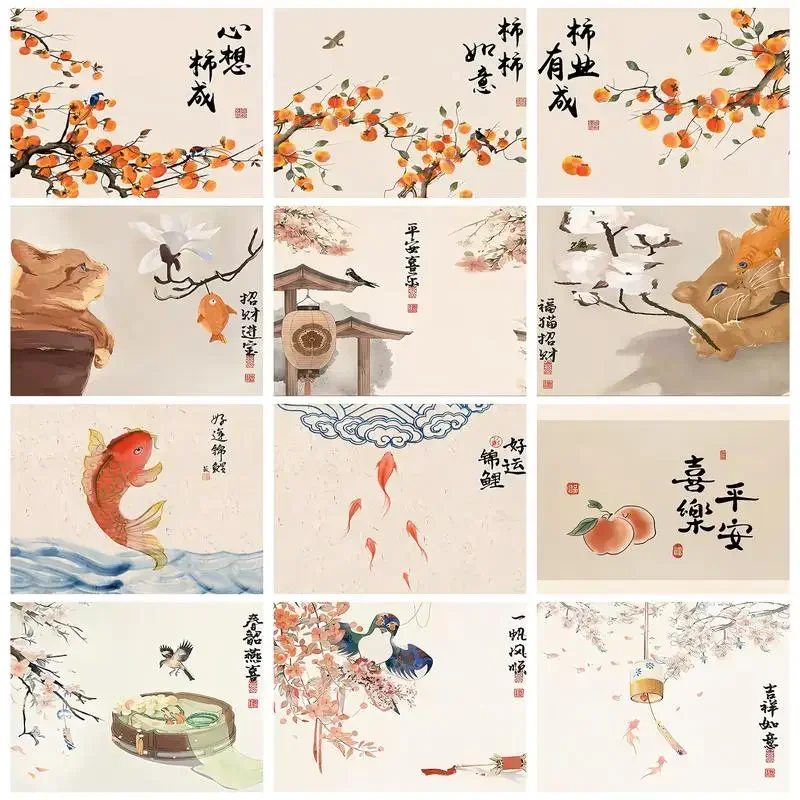 心想
柿成
柿柿
如意
柿业
有成
招财进宝
平安喜乐
福猫招财
好运锦鲤
好运
锦鲤
平安
喜樂
春韶燕喜
一帆风顺
吉祥如意